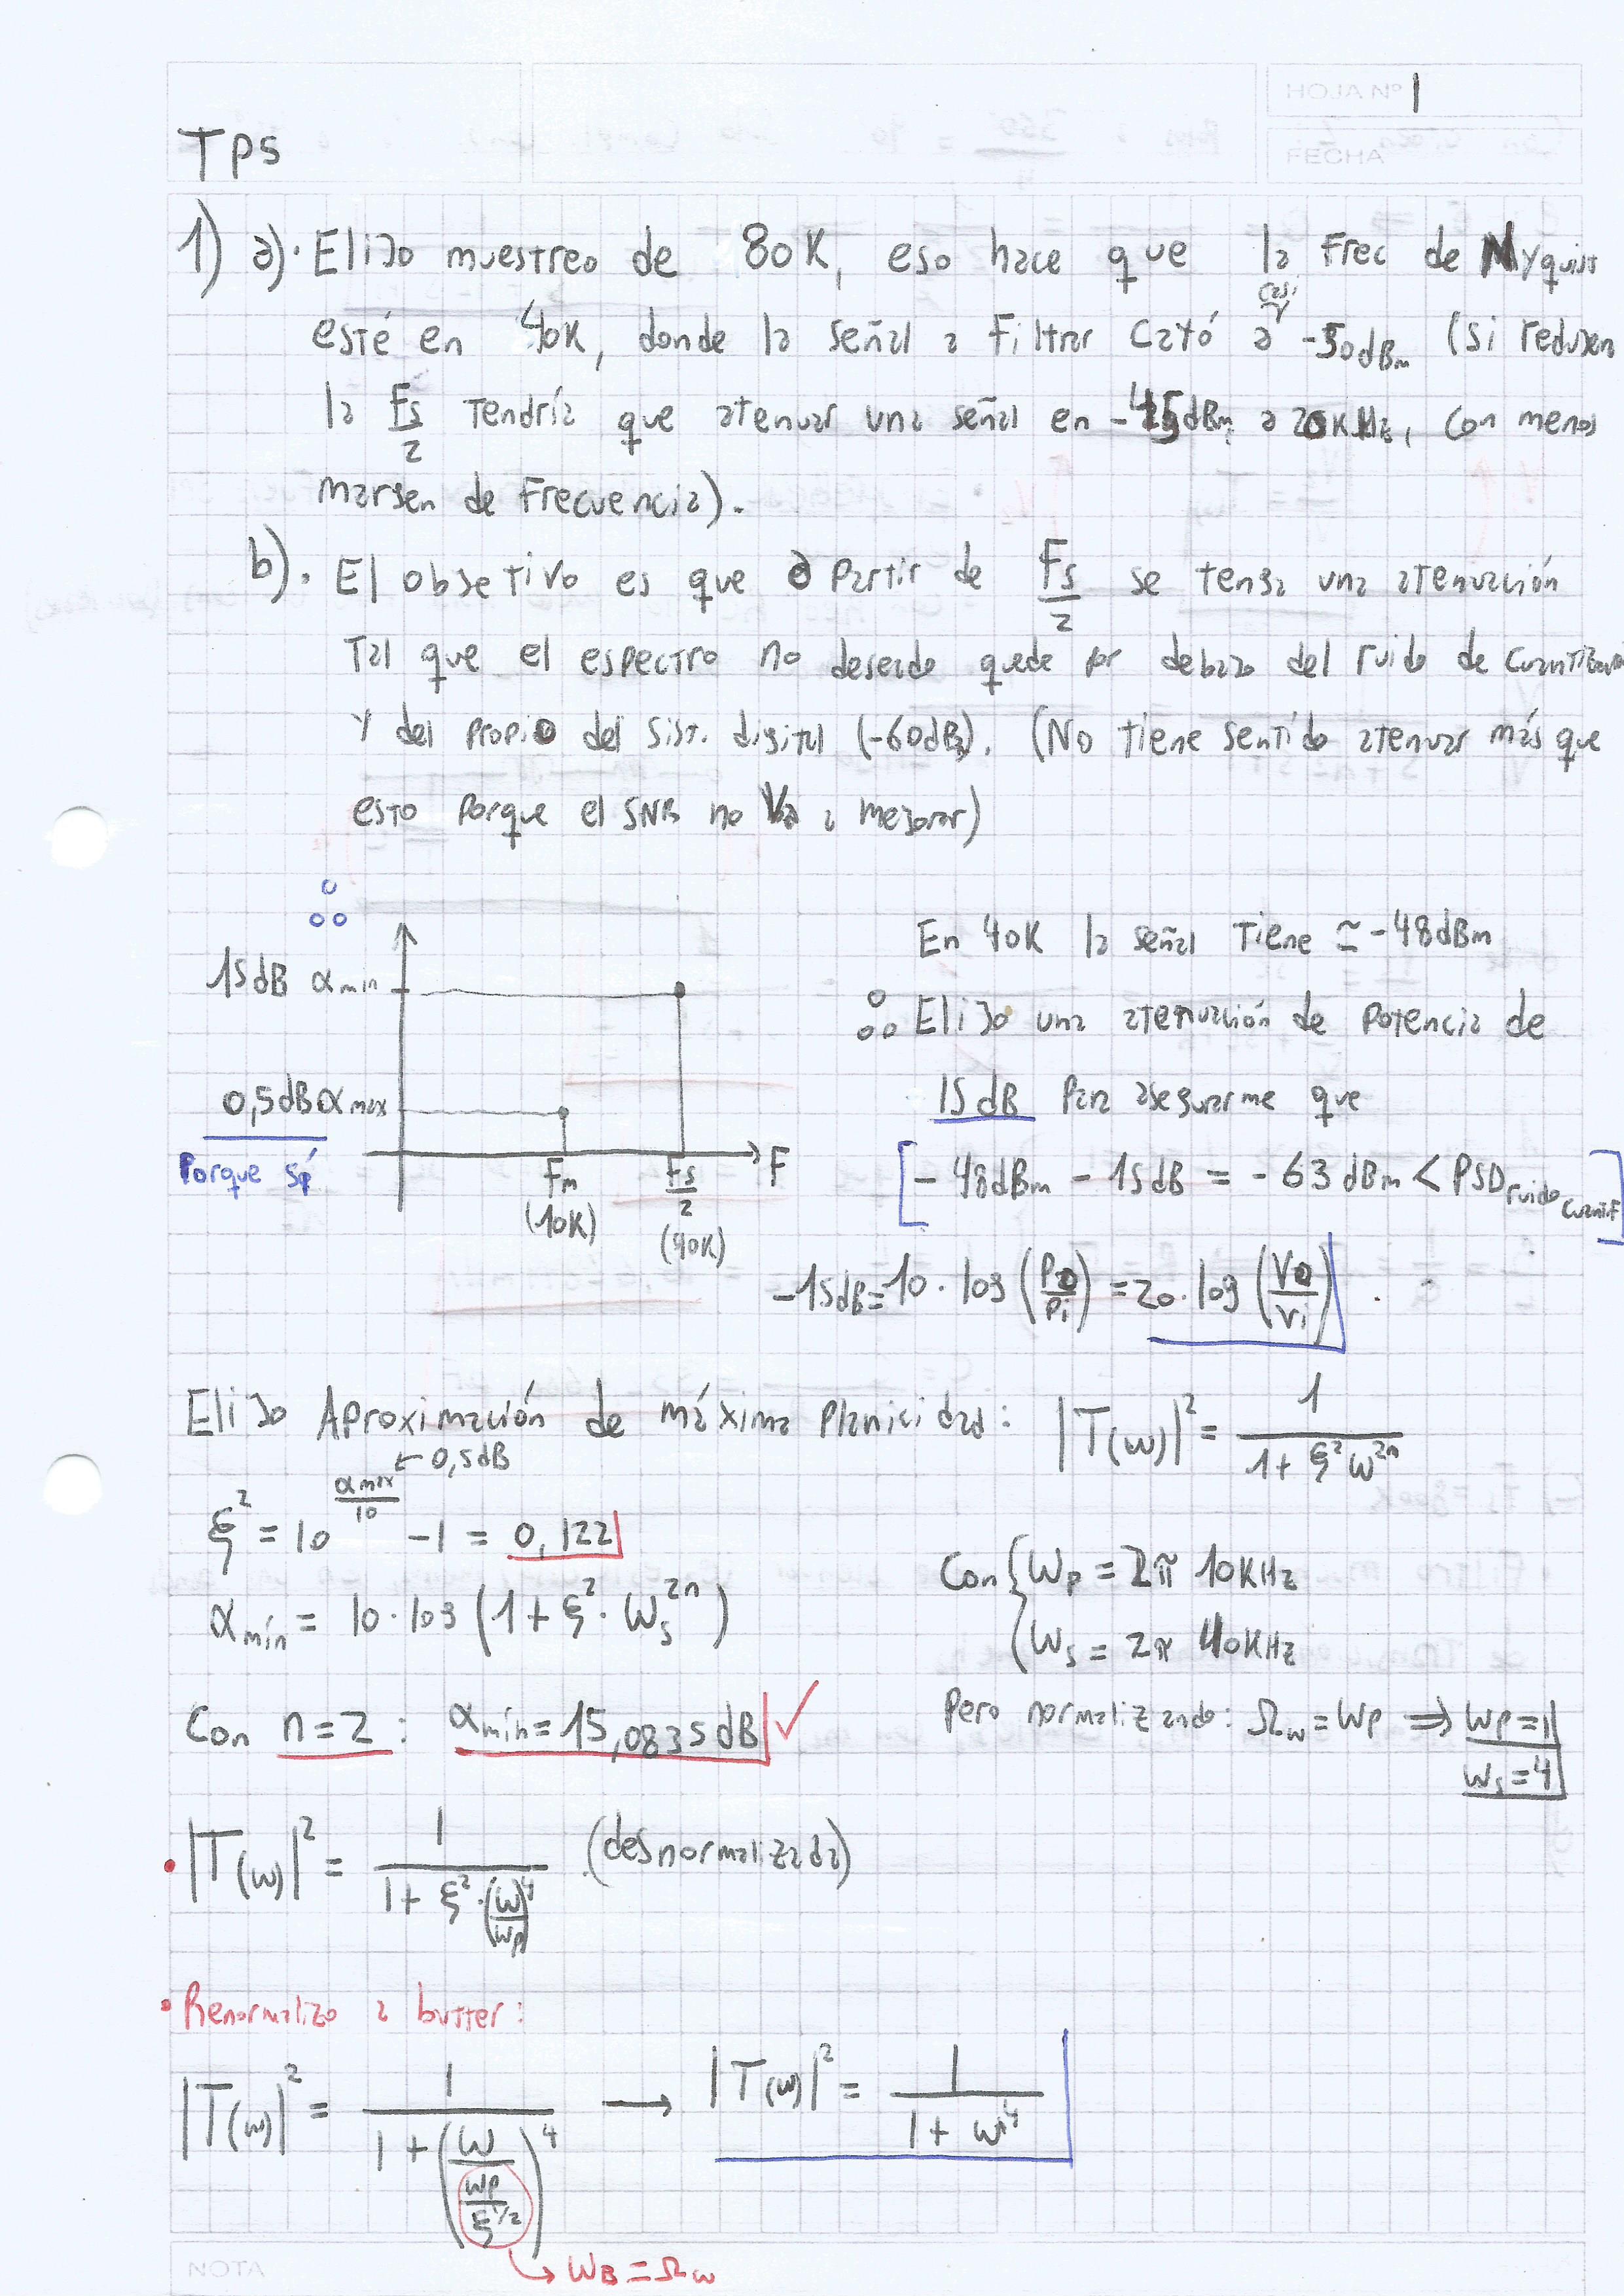 HOJA Nº 1
FECHA
TPS
1) a). Elijo muestreo de 80K, eso hace que la Frec de Nyquist
esté en 40K, donde la señal a Filtrar cayó a casi -50dBm (si redusen
la Fs/2 tendría que atenuar una señal en dBm a 20KHz, con menos
margen de Frecuencia).
b). El objetivo es que a partir de Fs/2 se tenga una atenuación
Tal que el espectro no deseado quede por debajo del ruido de
y del propio del Sist. digital (-60dB). (No tiene sentido atenuar más que
esto porque el SNR no va a mejorar)
∴
15dB αmin
0,5dB αmax
Porque sí
Fm
(10K)
Fs/2
(40K)
F
En 40K la señal tiene ≃ -48dBm
∴ Elijo una atenuación de potencia de
15dB para asegurarme que
[-48dBm - 15dB = -63dBm < PSD ruido cuantif]
-15dB = 10·log(Po/Pi) = 20·log(Vo/Vi)
Elijo Aproximación de máxima planicidad: |T(w)|² = 1/(1+ξ²w²ⁿ)
ξ² = 10^(αmax/10) - 1 = 0,122
← 0,5dB
αmín = 10·log(1+ξ²·ws²ⁿ)
Con { wp = 2π 10KHz
ws = 2π 40KHz
Con n=2: αmín = 15,0835dB ✓
Pero normalizando: Ωw = wp ⇒ wp=1
ws=4
• |T(w)|² = 1/(1+ξ²·(w/wp)⁴) (desnormalizada)
• Renormalizo a butter:
|T(w)|² = 1/(1+(w/(wp/ξ^1/2))⁴) → |T(w)|² = 1/(1+w⁴)
↳ wB = Ωw
NOTA